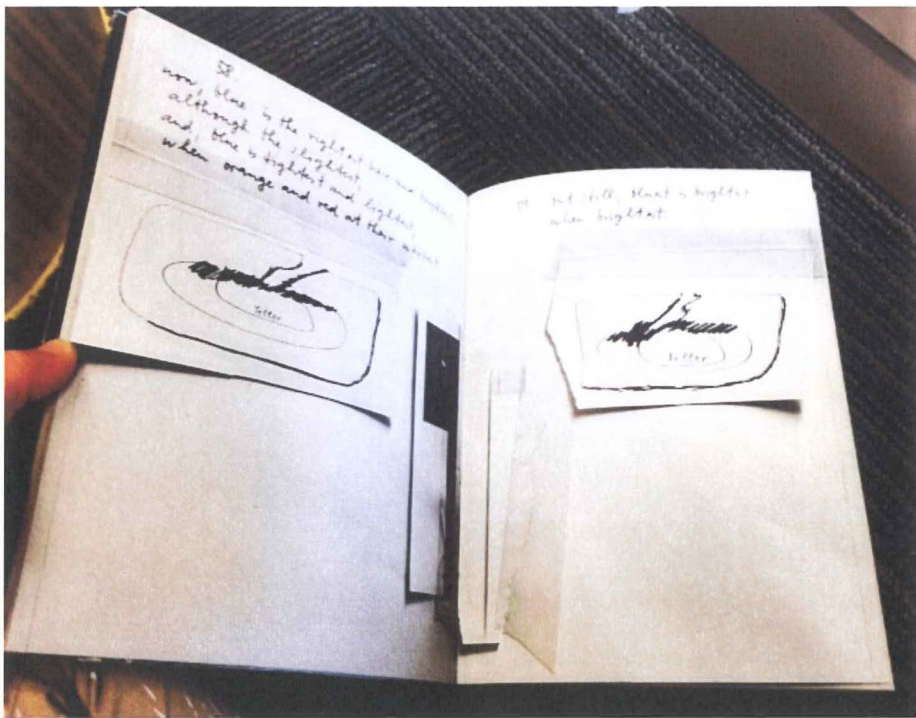 58
now, blue is the rightest hue and
although the slightest,
and, blue is tightest and lightest
when orange and red at their
Teller
but still, blunt is brightest
when brightest
Teller